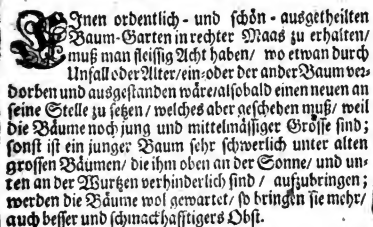 EInen ordentlich- und schön-ausgetheilten
Baum-Garten in rechter Maas zu erhalten/
muß man fleissig Acht haben/ wo etwan durch
Unfall oder Alter/ ein-oder der ander Baum ver-
dorben und ausgestanden wäre/alsobald einen neuen an
seine Stelle zu setzen/ welches aber geschehen muß/ weil
die Bäume noch jung und mittelmässiger Grösse sind;
sonst ist ein junger Baum sehr schwerlich unter alten
grossen Bäumen/ die ihm oben an der Sonne/ und un-
ten an der Wurtzen verhinderlich sind / aufzubringen;
werden die Bäume wol gewartet/ so bringen sie mehr/
auch besser und schmackhafftigers Obst.